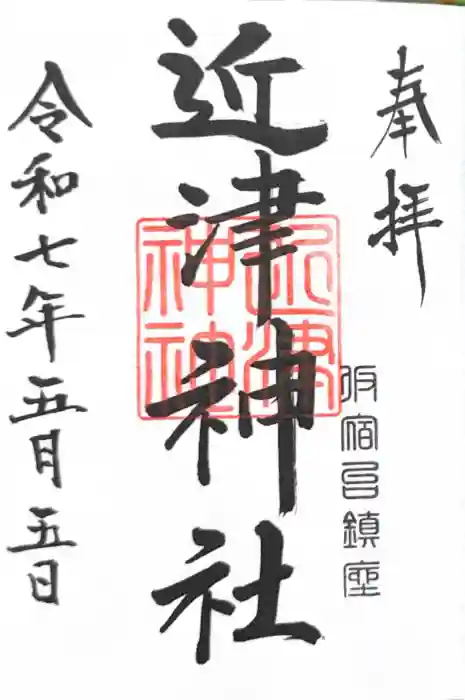 奉拝
鎮座
近津神社
近津神社
令和七年五月五日